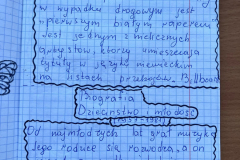 w wypadku drogowym jest
"pierwszym białym raperem"
Jest jednym z nielicznych
artystów, którzy umieszczają
tytuły w języku niemieckim
na listach przebojów Billboard
Biografia
Dzieciństwo młodość
Od najmłodszych lat grał muzykę
Jego rodzice się rozwodzą, a on